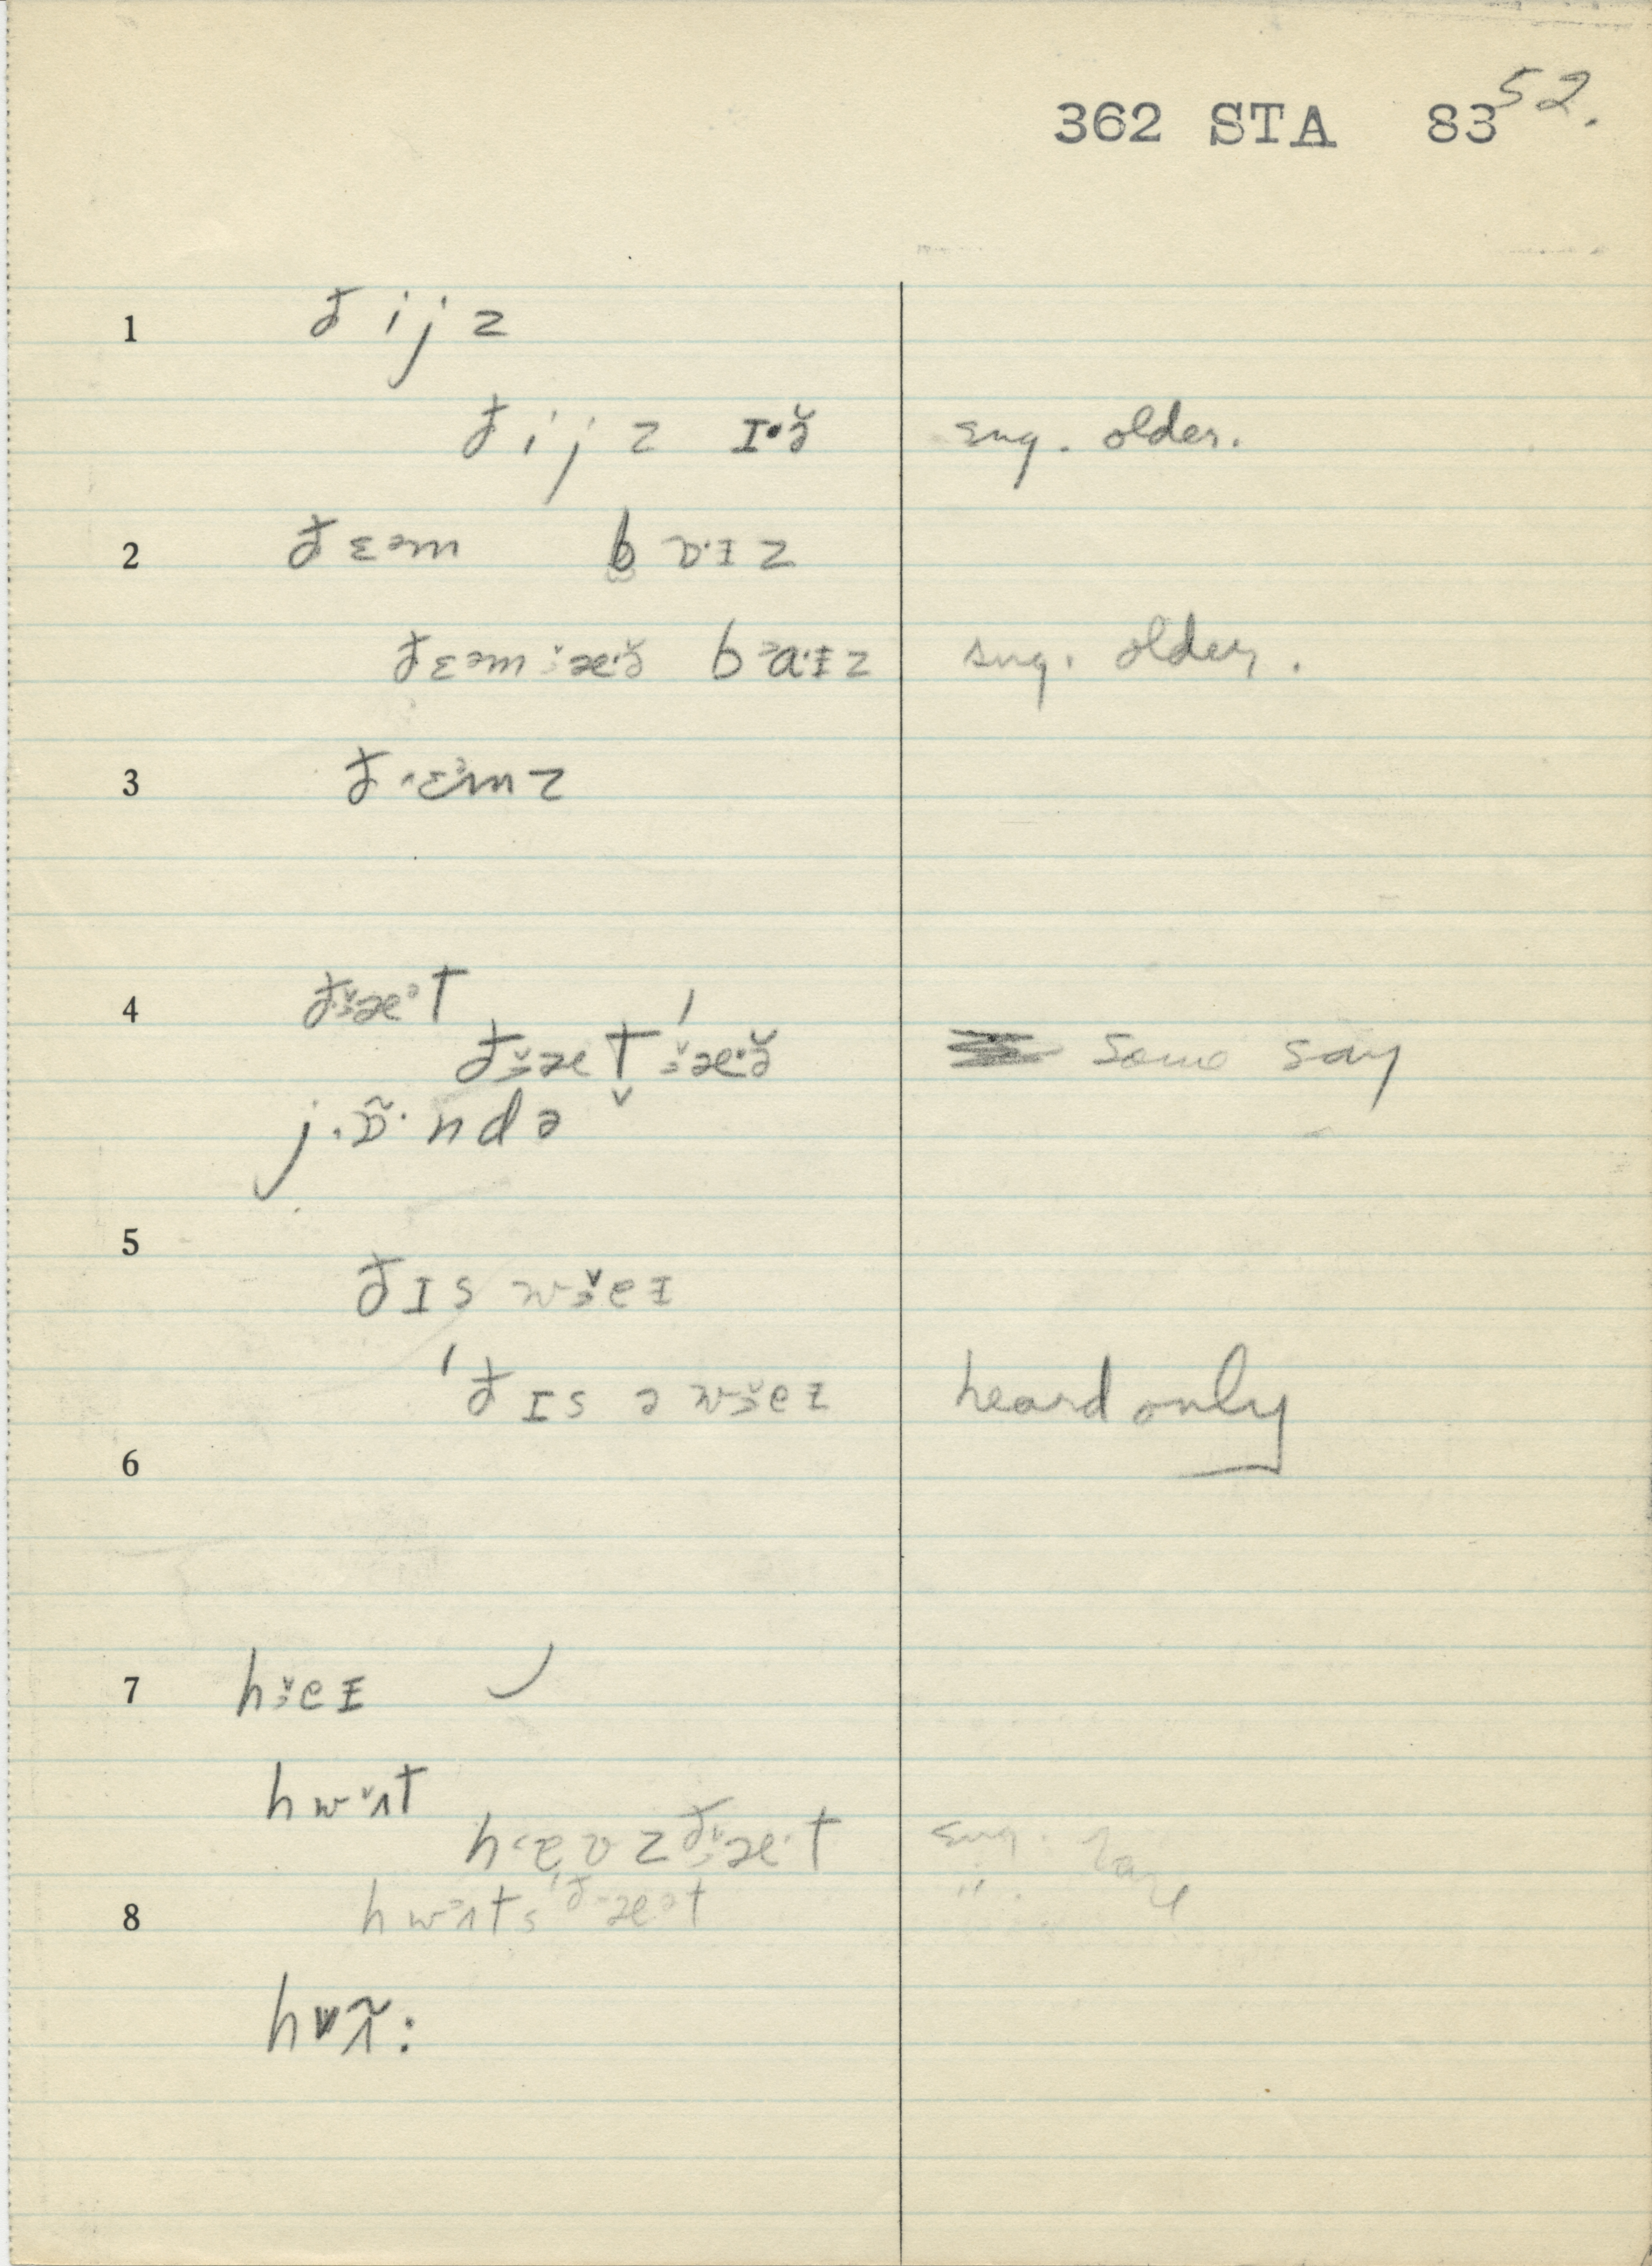 362 STA 83 52.
1 ðijz
ðijz ɪ·ə̆ sug. older.
2 ðɛᵊm bɒ·ɪz
ðɛᵊmæ·ə̆ bᵊa·ɪz sug. older.
3 ðɛᵊmz
4 ðæᵊt
ðæt ˈæ·ə̆ some say
j·ɒ̃·ndə
5 ðɪs wɜ̆eɪ
ˈðɪs ə wɜ̆eɪ heard only
6
7 hɜ̆eɪ
hwʌt
hɛʊz ðæ·t sug.
8 hwᵊʌts ˈðæᵊt " .
hwʌ̃: